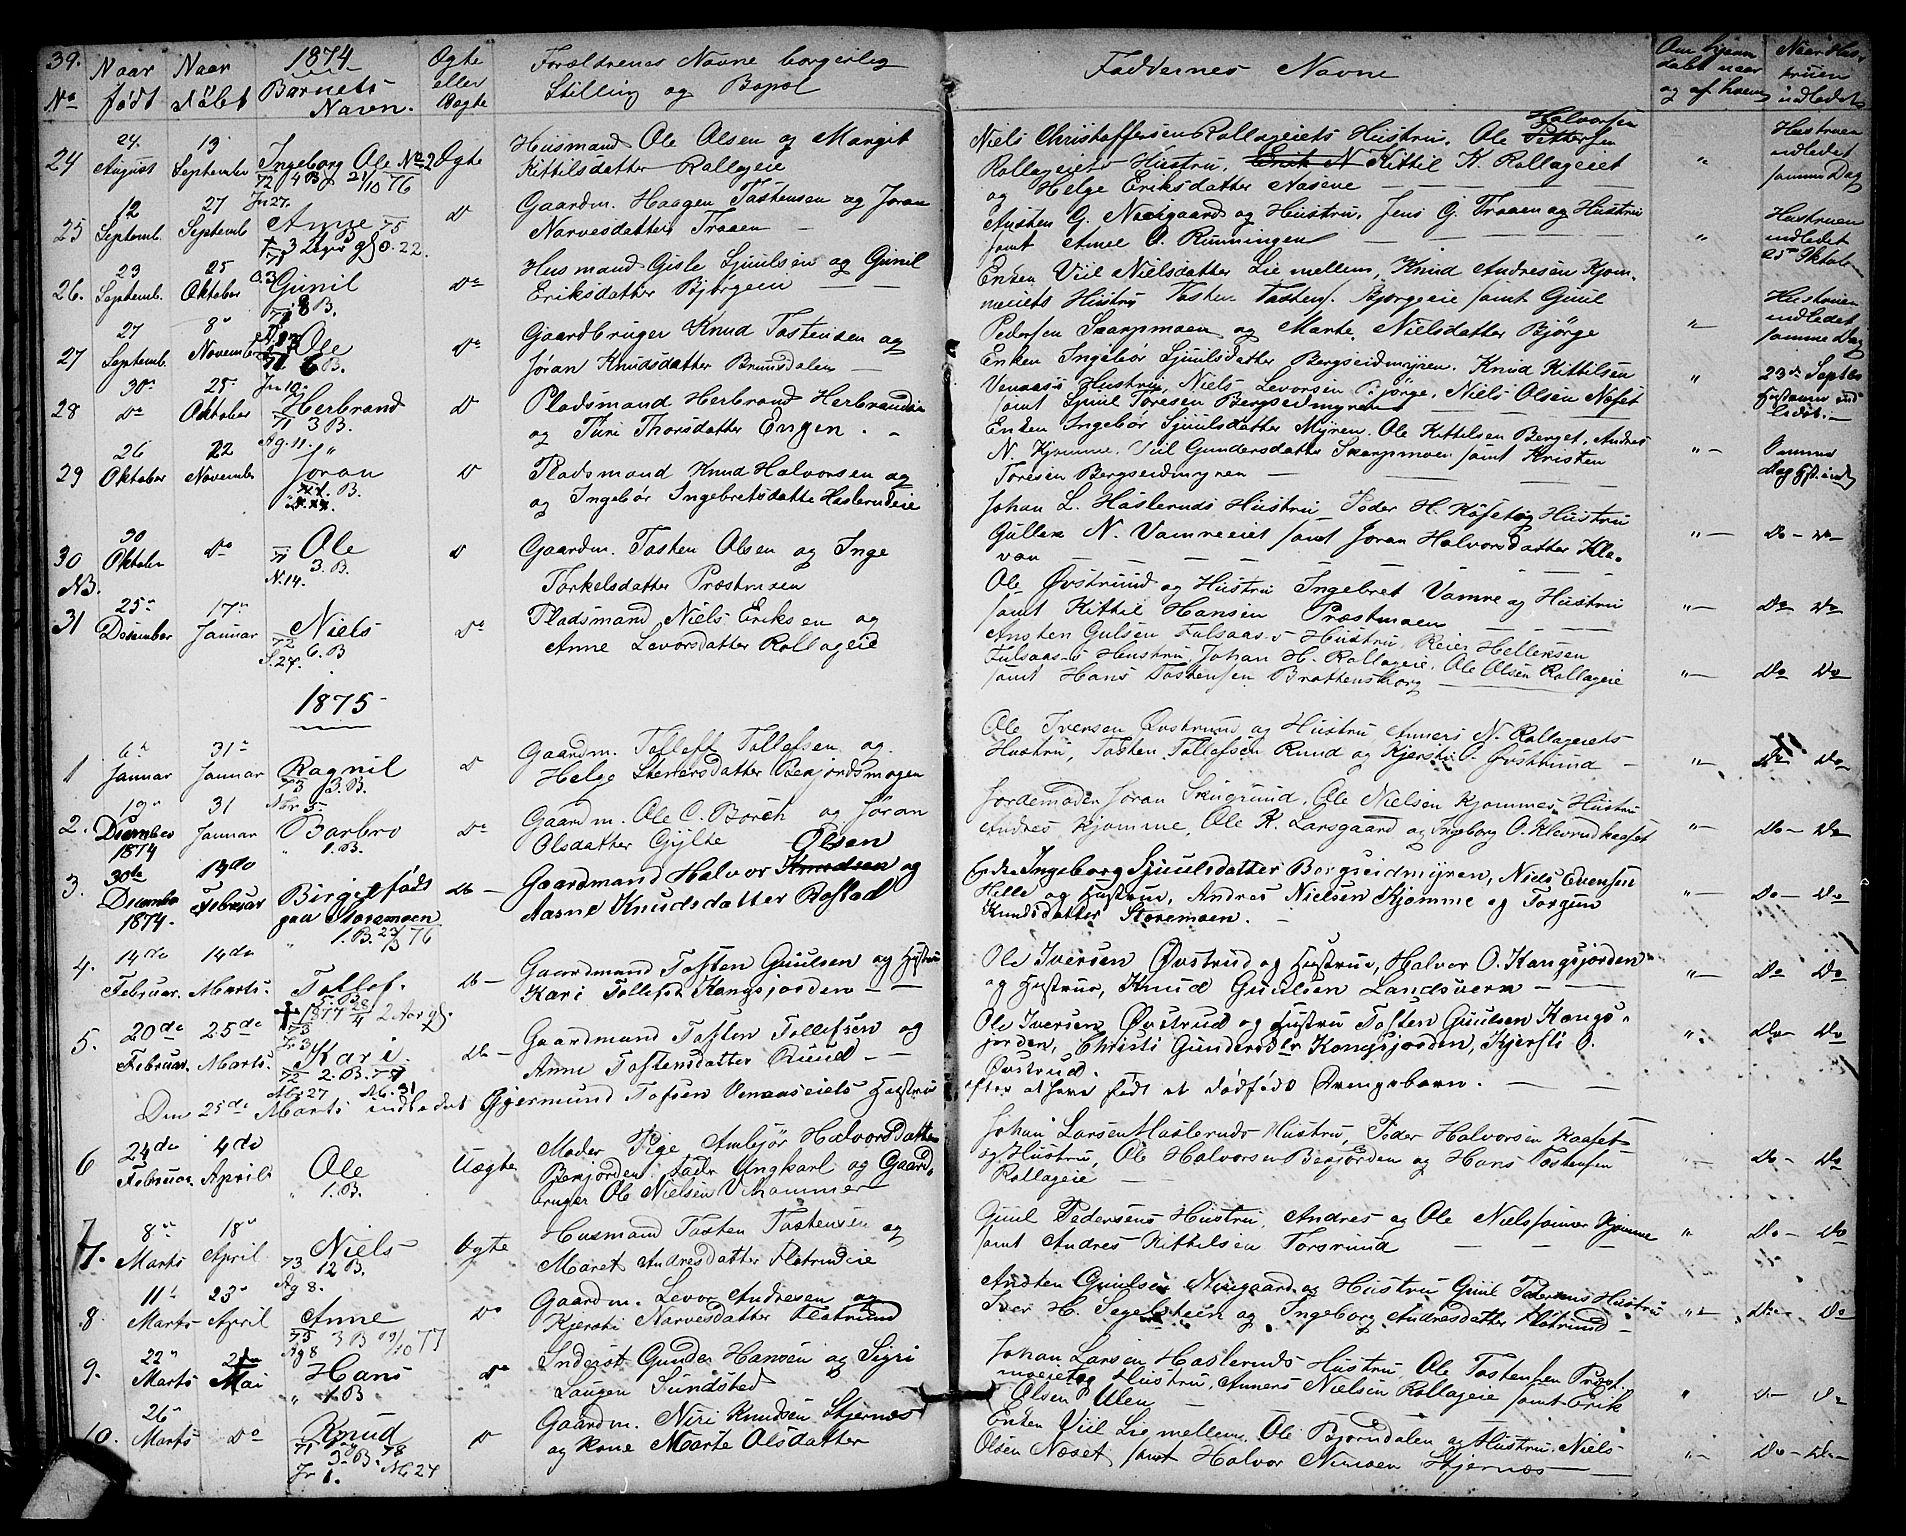 39.
No
Naar født
Naar døbt
1874
Barnets Navn.
Ægte eller Uægte
Forældrenes Navne borgerlig Stilling og Bopæl
Faddernes Navne
Om hjemmedøbt naar og af hvem
Naar Hustruen indledet
24
24. August
13 September
Ingeborg Ole No 2
72 4 B 21/10 76
Ægte
Husmand Ole Olsen og Margit
Kittilsdatter Rollageie
Niels Christoffersen Rollageiets Hustru, Ole Halvorsen
Rollageie Hustru, Kittil K. Rollageiet
og Helge Eriksdatter Nasene
"
Hustruen indledet samme Dag
25
12 Septemb.
27 Septemb
Anne
Do
Gaardm. Haagen Tostensen og Joran
Narvesdatter Traaen
Austen G. Nusgaard og Hustru, Jens G. Traaen og Hustru
samt O. Runningen
"
Hustruen indledet 25de Oktober
26.
23 Septemb.
25 Oktober
Gunil
8 B.
Do
Husmand Gisle Sjuulsen og Gunil
Eriksdatter Bjørgeeie
Enken Viil Nielsdatter Liemellem, Knud Andresen Kjom-
meiets Hustru Tosten Tostens. Bjørgeeie samt Guul
Pedersen Skarpmoen og Marte Nielsdatter Bjørge
"
Hustruen indledet samme Dag
27
27 Septemb.
8de November
Ole
6 B.
Do
Gaardbruger Knud Tostensen og
Jøran Knudsdatter Bruusdalen
Enken Ingebør Sjuulsdatter Bergseidmyren. Knud Kittilsen
Venaas's Hustru, Niels Levorsen Bjørge, Niels Olsen Næset
samt Sjuul Toresen Bergseidmyren
"
23de Septbr Hustruen indledet.
28
30te Do
25de Oktober
Herbrand
71 3 B.
Do
Pladsmand Herbrand Herbrandsen
og Turi Thorsdatter Engen.
Enken Ingebør Sjuulsdatter Myren. Ole Kittilsen Berget, Andres
N. Kjomme. Viil Gundersdatter Skarpmoen samt Kristen
Toresen Bergseidmyren
"
Samme Dag Hst. indl
29
26 Oktober
22 November
Joran
B.
Do
Pladsmand Knud Halvorsen og
og Ingebør Ingebretsdatter Haslerudeie
Johan L. Hasleruds Hustru Peder H. Kaaset og Hustru
Gullek N. Vamreeiet samt Joran Halvorsdatter
"
Do Do
30
NB.
30 Oktober
Do
Ole
71 3. B.
N. 14.
Do
Gaardm. Tosten Olsen og Inge
Torkelsdatter Præstmoen
Ole Øvstrud og Hustru Ingebret Vamre og Hustru
samt Kittil Hansen Præstmoen
"
Do Do
31
25de Desember
17de Januar
Niels
72 6. B
S. 27.
Do
Pladsmand Niels Eriksen og
Anne Levorsdatter Rollageie
Austen Gulsen Fulsaas's Hustru, Reier Helleksen
Fulsaas's Hustru Johan H. Rollageie, Ole Olsen Rollageie
samt Hans Tostensen Brattensborg
"
Do Do
1875
1
6te Januar
31te Januar
Ragnil
73 3. B.
Do
Gaardm. Tollef Tollefsen og
Helge Stenersdatter Venjordsmogen
Ole Iversen Øvstrud og Hustru Anners N. Rollageiets
Hustru, Tosten Tollefsen Ruud og Kjersti O. Øvstrud
"
Do Do
2.
19de December 1874
31 Januar
Barbro
" 1. B.
Do
Gaardm. Ole C. Borch og Jøran
Olsdatter Gylte
Jordemoder Joran Skugrud, Ole Nielsen Kjommes Hustru
Andres Kjomme, Ole K. Larsgaard og Ingeborg O. Kleivrudkaaset
"
Do Do
3.
30te December 1874.
14de Februar
Birgit født paa Storemoen
1. B. 23/3 76
Do
Gaardmand Halvor Olsen og
Aasne Knudsdatter Rostad
Enke Ingeborg Sjuulsdatter Bergseidmyren, Niels Evensen
Helle og Hustru, Andres Nielsen Kjomme og Torgun
Knudsdatter Storemoen.
"
Do Do
4.
14de Februar.
14de Marts.
Tollef.
Do
Gaardmand Tosten Guulsen og Hustru
Kari Tollefsd. Kongsjorden
Ole Iversen Øvstrud og Hustru, Halvor O. Kongsjorden
og Hustru, Knud Guulsen Landsverk
"
Do Do
5.
20de Februar.
25de Marts.
Kari.
72 2. B.
Do
Gaardmand Tosten Tollefsen og
Anne Tostensdatter Ruud
Ole Iversen Øvstrud og Hustru Tosten Guulsen Kongs-
jorden, Christi Gundersdtr Kongsjorden, Kjersti O.
Øvstrud.
"
Do Do
Den 25de Marts indledet Gjermund Tofsen Venaaseiets Hustru
efter at have født et dødfødt Drengebarn.
6
24de Februar.
4de April
Ole
" 1. B.
Uægte
Moder Pige Ambjør Halvorsdatter
Venjorden. Fader Ungkarl og Gaard-
bruger Ole Nielsen Vihammer
Johan Larsen Hasleruds Hustru, Peder Halvorsen Kaaset
og Hustru, Ole Halvorsen Venjorden og Hans Tostensen
Rollageie
Do Do
7.
8de Marts
18de April
Niels
73 12 B.
Ag 8.
Ægte
Husmand Tosten Tostensen og
Maret Andresdatter Fletrudeie
Guul Pedersens Hustru, Andres og Ole Nielssønner Kjomme
samt Andres Kittilsen Forsrund
"
Do Do
8.
11te Marts
23de April
Anne
73 3 B 19/10 77
Ag 8
Do
Gaardm. Levor Andresen og
Kjersti Narvesdatter Fletrund
Austen Guulsen Nusgaard og Hustru Guul Pedersens Hustru
Iver H. Segelstuen og Ingeborg Andresdatter Fletrund
"
Do Do
9.
22de Marts
Mai
Hans
" 1. B
Do
Inderst Gunder Hansen og Sigri
Laugen Sundsted
Johan Larsen Hasleruds Hustru Ole Tostensen Præst-
moeiet og Hustru, Anners Nielsen Rollageie samt Erik
Olsen Ulen
"
Do Do
10.
26de Marts
Do
Knud
Do
Gaardm. Niri Knudsen Stjernes
og Kone Marte Olsdatter
Enken Viil Liemellem. Ole Bjørndalen og Hustru. Niels
Olsen Næset samt Halvor Nirisen Stjernes
"
Do Do